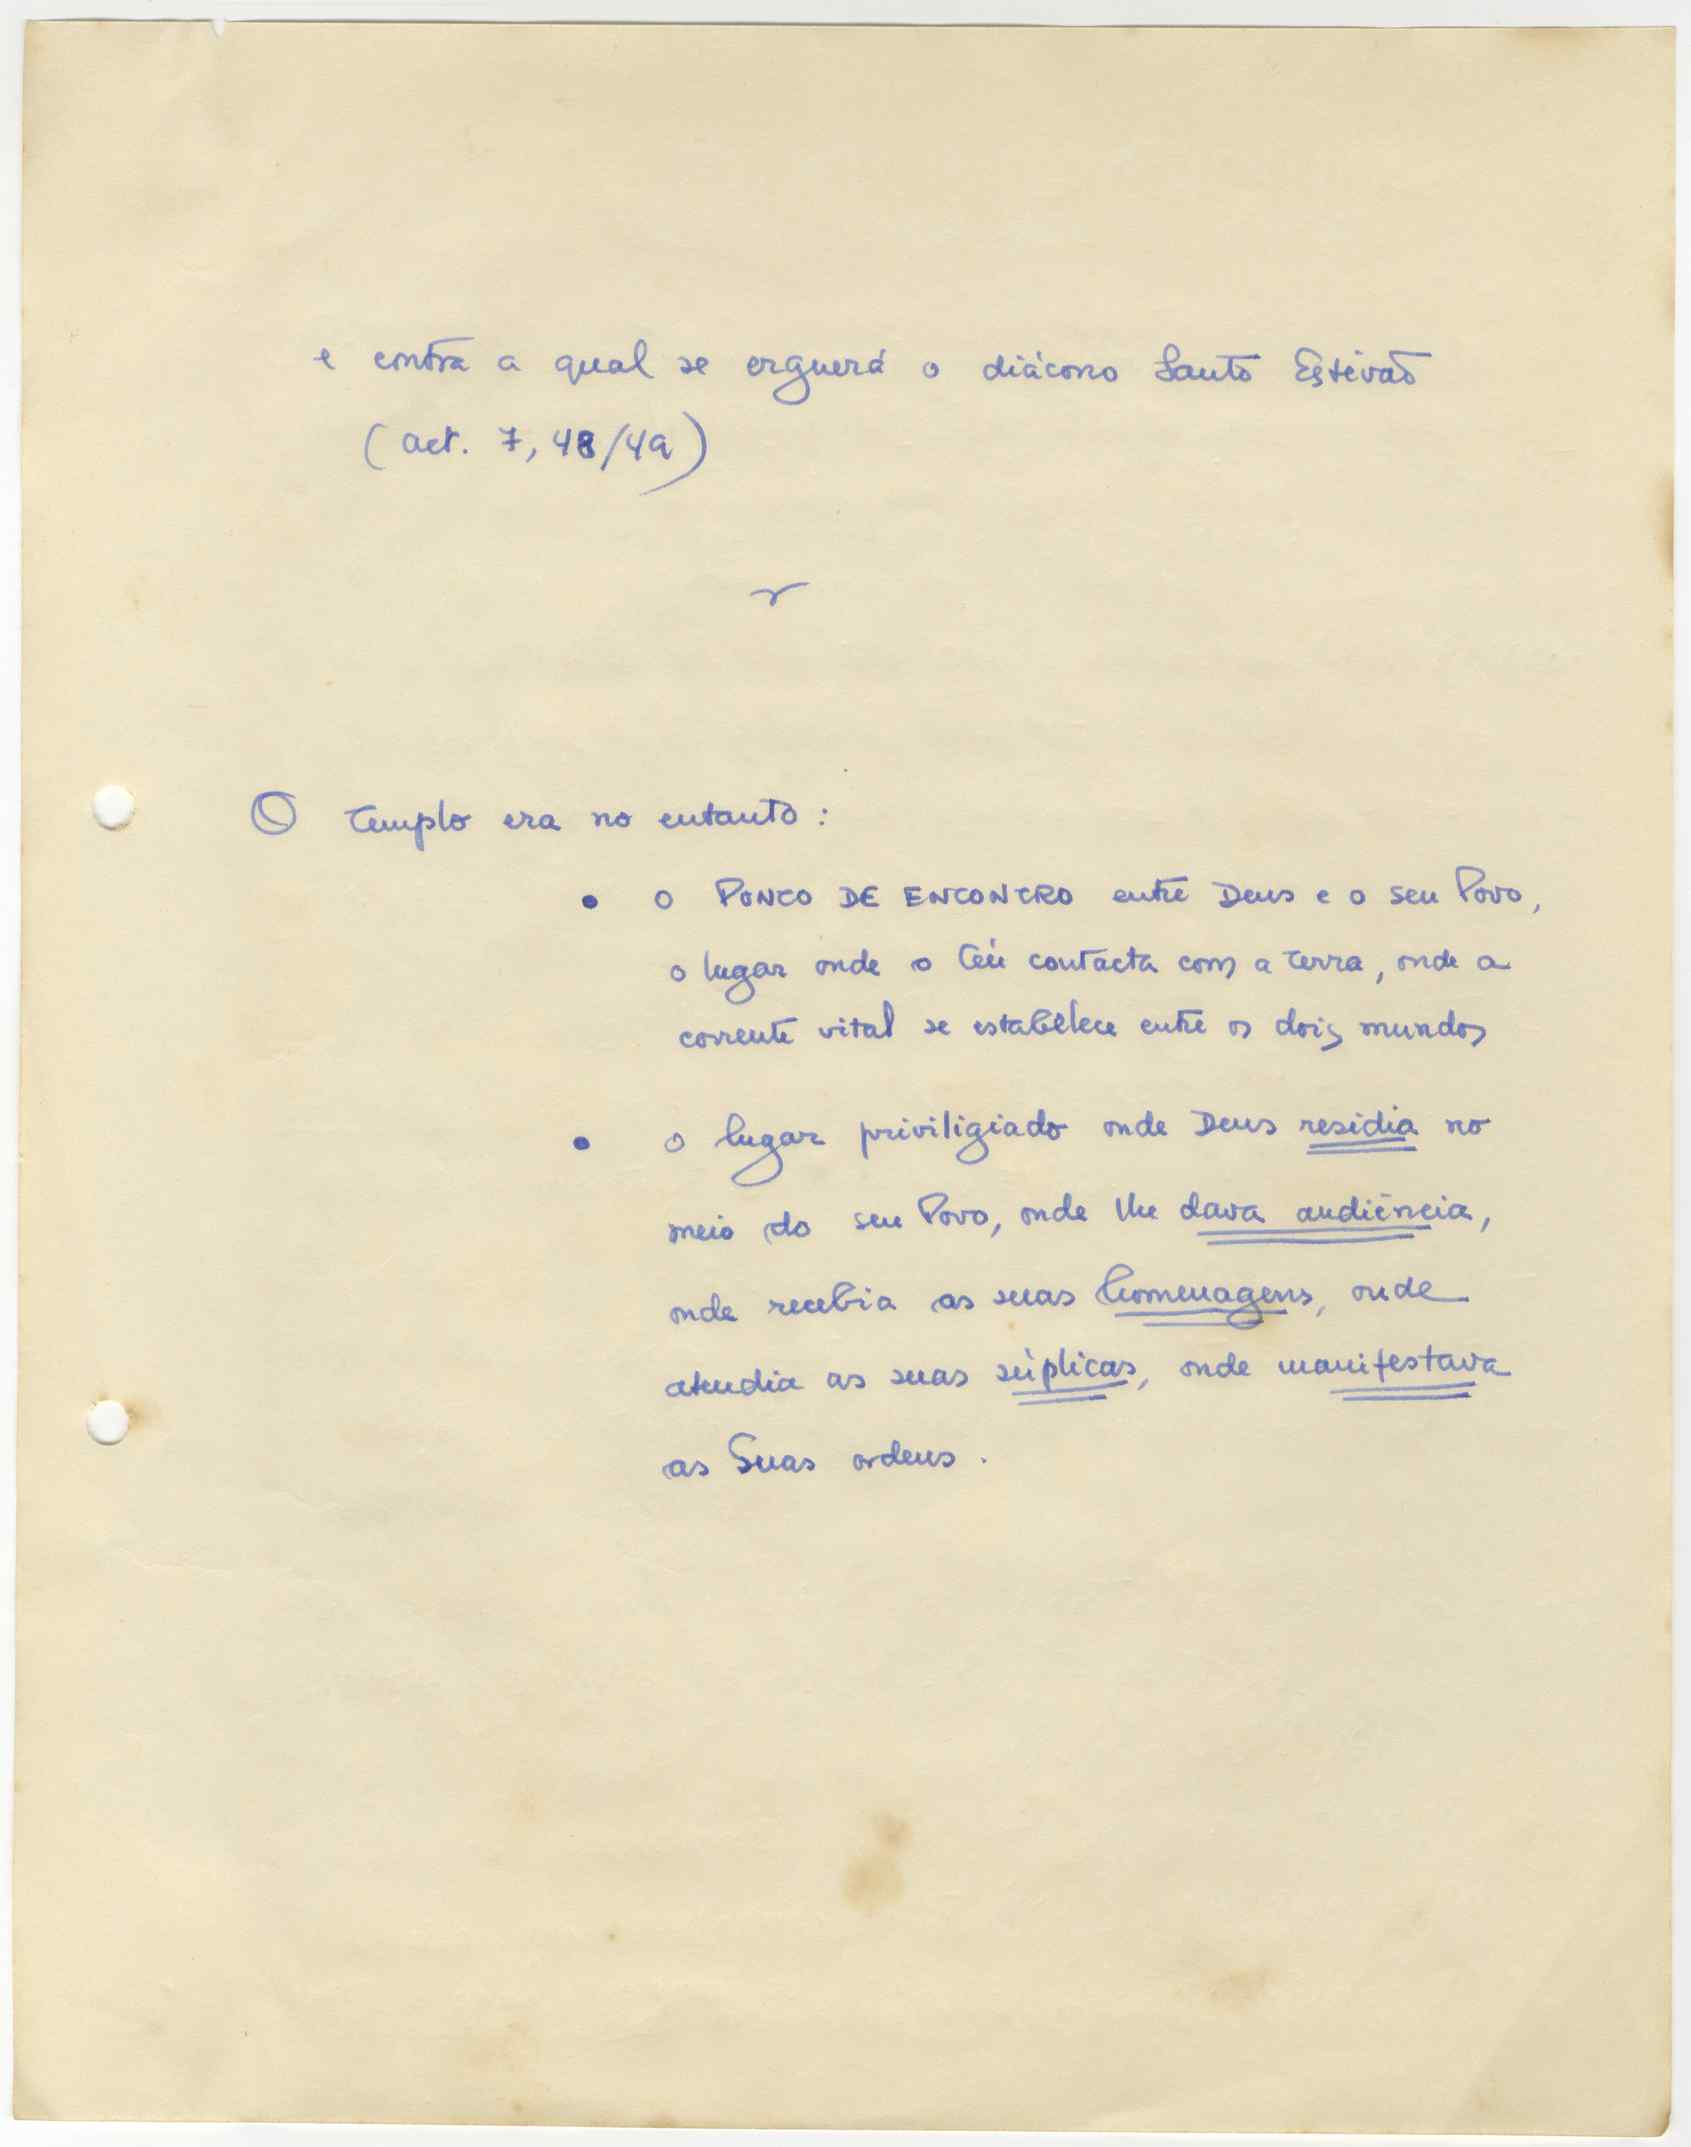 e contra a qual se erguerá o diácono Santo Estêvão
(act. 7, 48/49)
O Templo era no entanto:
• O PONTO DE ENCONTRO entre Deus e o seu Povo,
o lugar onde o Céu contacta com a terra, onde a
corrente vital se estabelece entre os dois mundos
• o lugar priviligiado onde Deus residia no
meio do seu Povo, onde lhe dava audiência,
onde recebia as suas homenagens, onde
atendia as suas súplicas, onde manifestava
as Suas ordens.